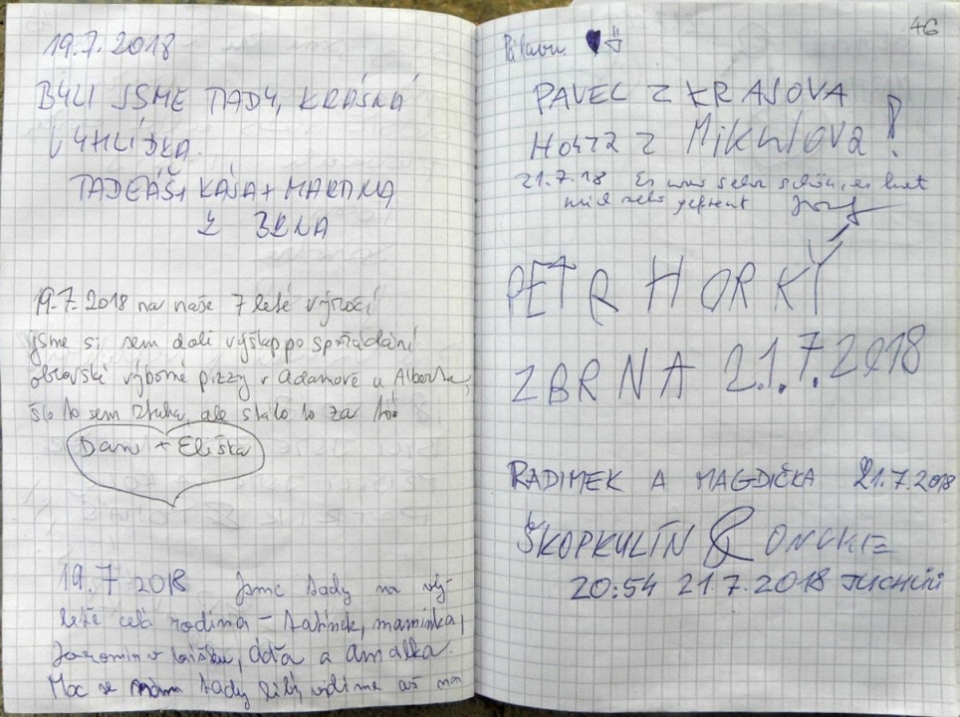 19.7.2018
BYLI JSME TADY, KRÁSNÁ
VYHLÍDKA.
TADEÁŠ + KÁJA + MARTINA
Z BRNA
19.7.2018 na naše 7 leté výročí
jsme si sem dali výšlap po spořádání
obrovské výborné pizzy v Adamově u Alberta,
šlo to sem ztuha, ale stálo to za to
Dan + Eliška
19.7 2018 Jsme tady na výj
letě celá rodina - tatínek, maminka,
Jaromír v bříšku, a Amálka.
Moc se nám tady líbí, vidíme až
46
Pálavu
PAVEL Z KRASOVA
HONZA Z Mikulova!
21.7.18 Es war sehr schön, es hat
mich sehr gefreut
PETR HORKÝ
Z BRNA 21.7.2018
RADIMEK A MAGDIČKA 21.7.2018
ŠKOPKULÍN &
20:54 21.7.2018